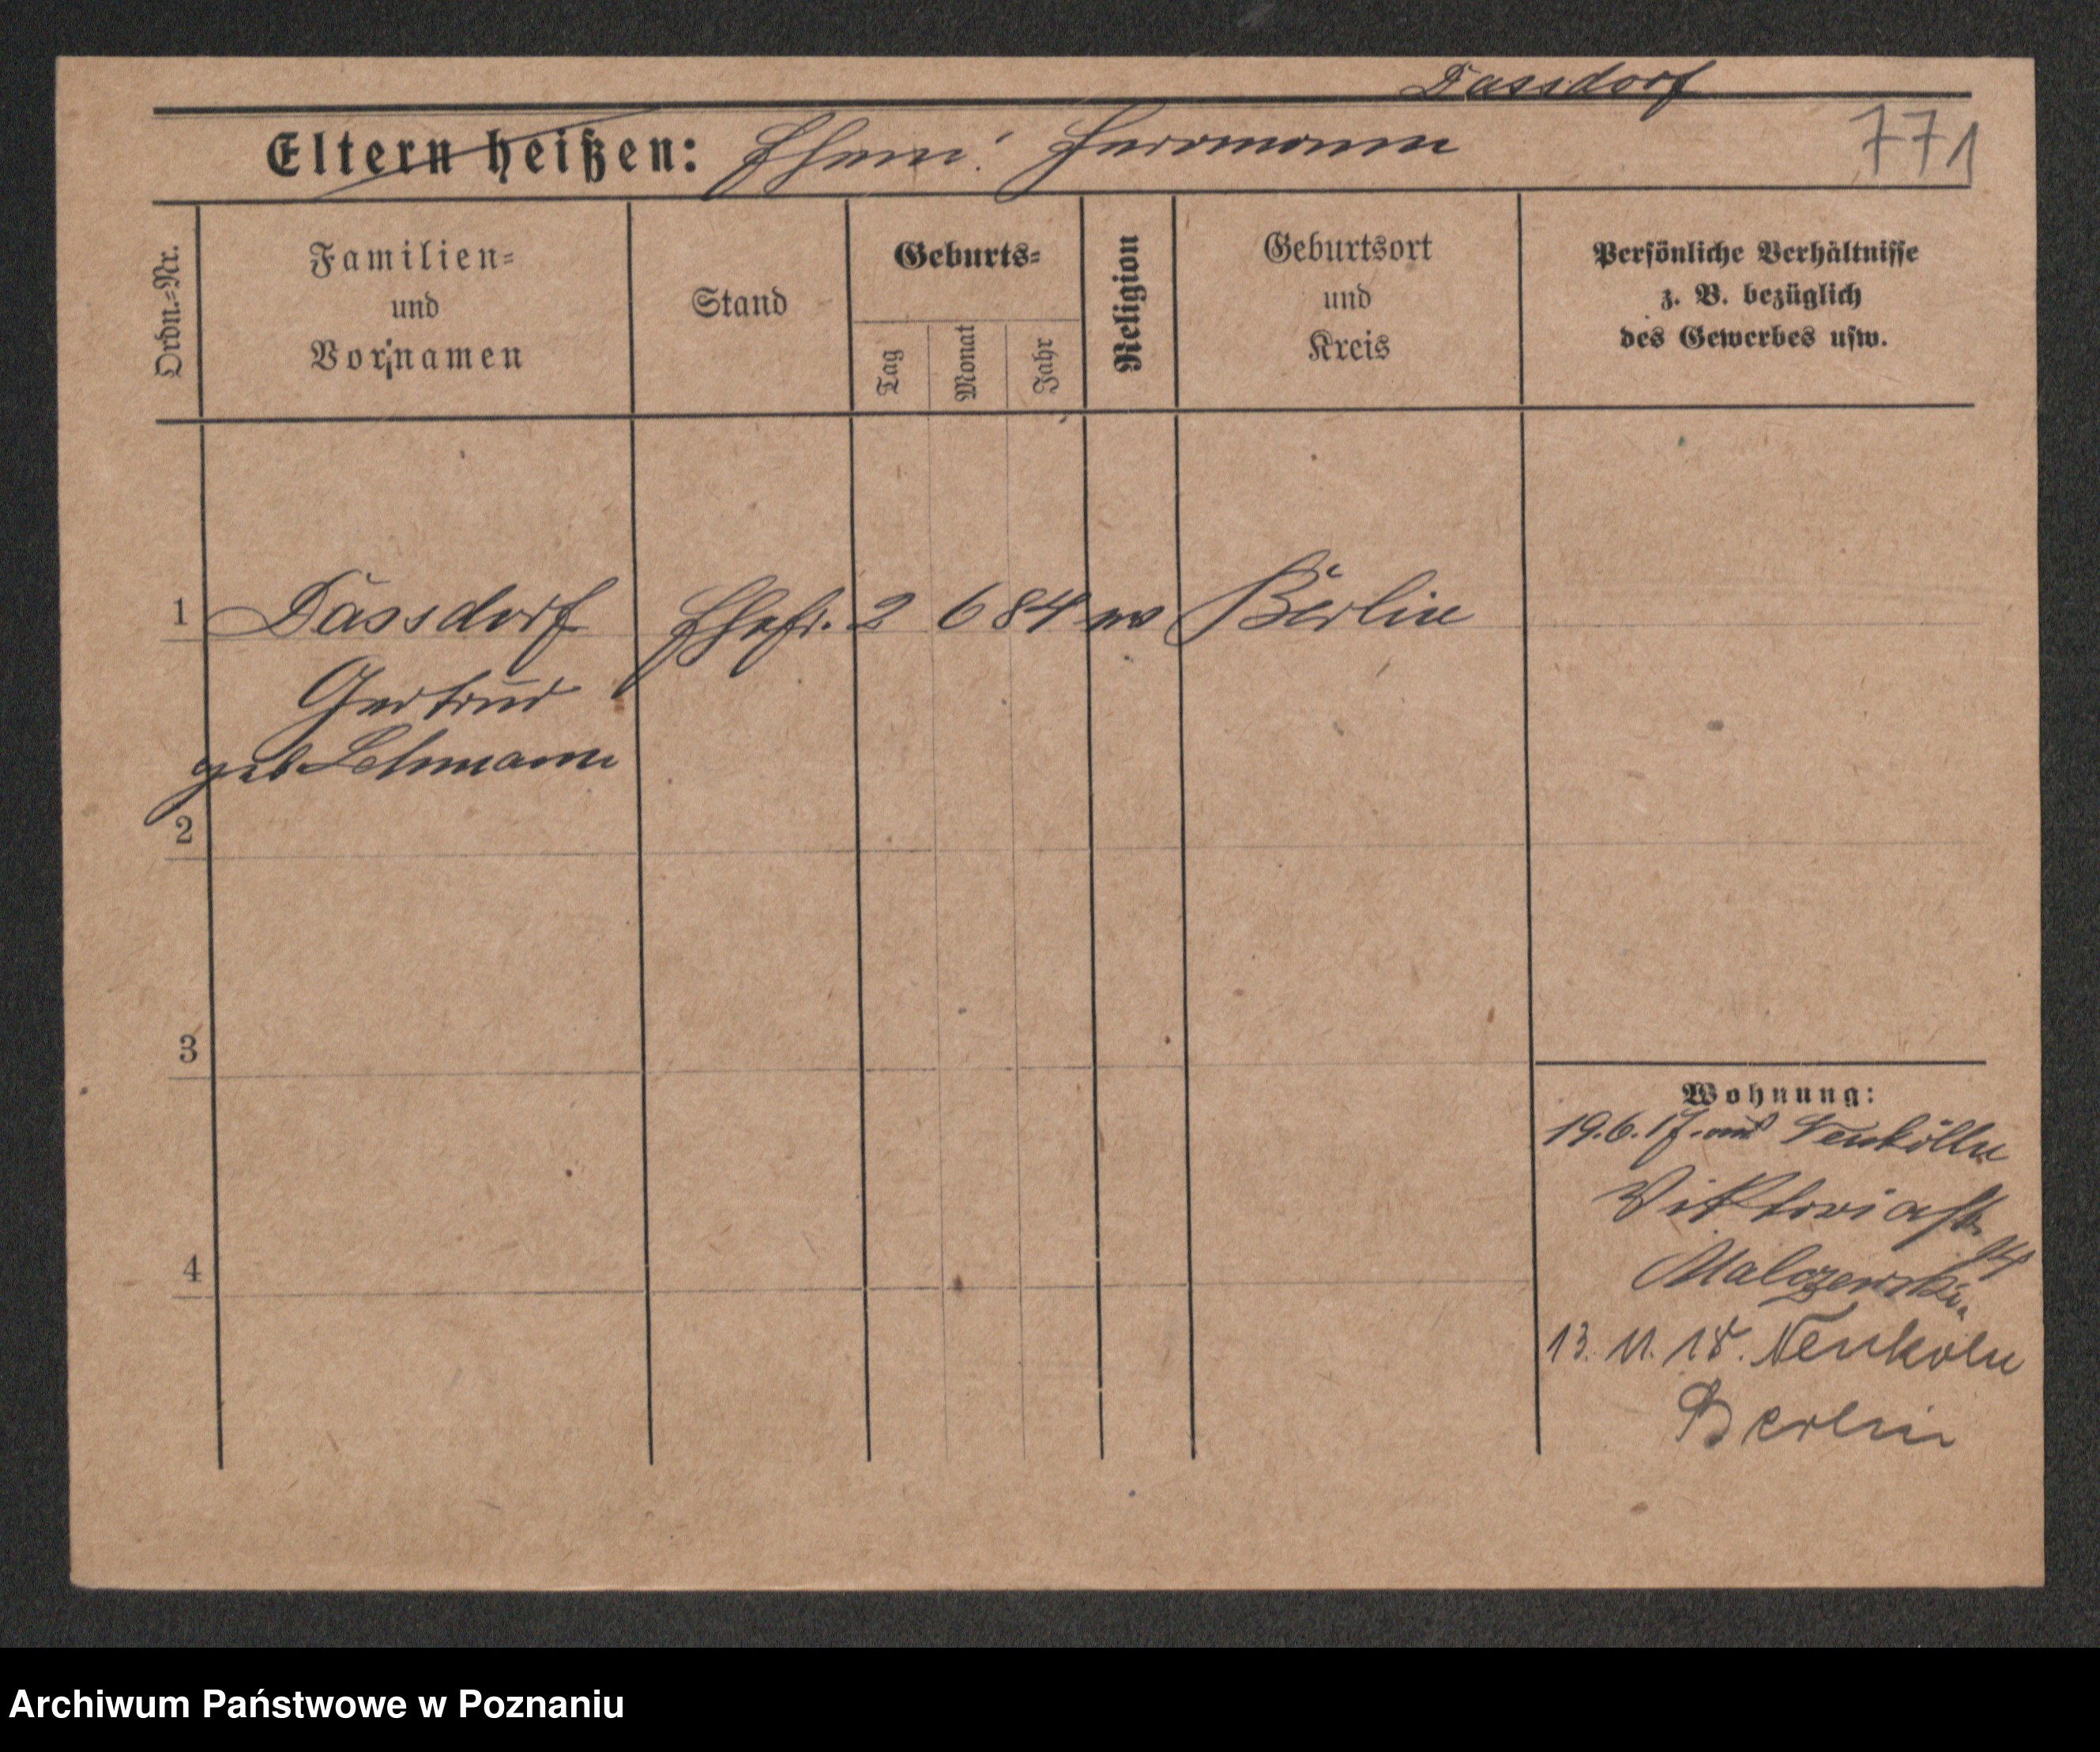 Dassdorf
Eltern heißen: Ehem: Herrmann
771
Ordn.=Nr.
Familien=
und
Vornamen
Stand
Geburts=
Tag
Monat
Jahr
Religion
Geburtsort
und
Kreis
Persönliche Verhältnisse
z. B. bezüglich
des Gewerbes usw.
1 Dässdorf Ehefr. 2 6 84 ev Berlin
Gertrud
geb Lehmann
2
3
4
Wohnung:
19.6.17. aus Neukölln
Viktoriastr.
14
13. 11. 18. Neuköln
Berlin
Archiwum Państwowe w Poznaniu